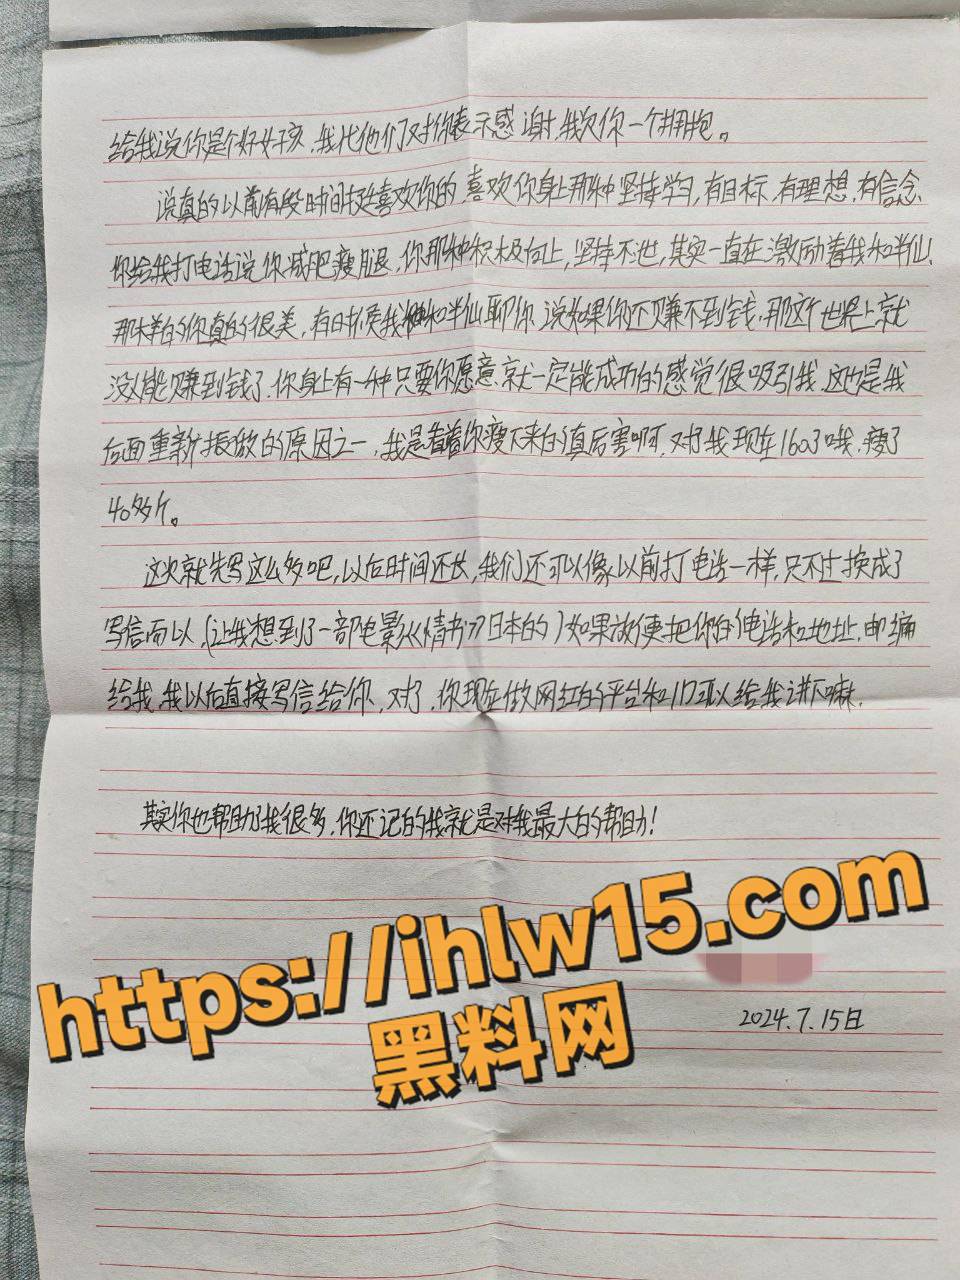 给我说你是个好女孩，我代他们对你表示感谢，我欠你一个拥抱。
说真的以前有段时间挺喜欢你的，喜欢你身上那种坚持学习，有目标，有理想，有信念
你给我打电话说你减肥瘦腿，你那种积极向上，坚持不池，其实一直在激励着我和半仙、
那样的你真的很美，有时候我和半仙聊你说如果你还赚不到钱，那这个世界上就
没人能赚到钱了，你身上有一种只要你愿意就一定能成功的感觉很吸引我，这也是我
后面重新振做的原因之一，我是看着你瘦下来的真厉害啊，对了我现在160了哦，瘦了
40多斤。
这次就先写这么多吧，以后时间还长，我们还可以像以前打电话一样，只不过换成了
写信而以（让我想到了一部电影《情书》日本的）如果放便把你的电话和地址，邮编
给我，我以后直接写信给你，对了，你现在做网红的平台和ID可以给我讲下嘛，
其实你也帮助了我很多，你还记的我就是对我最大的帮助！
https://ihlw15.com
黑料网
2024.7.15日